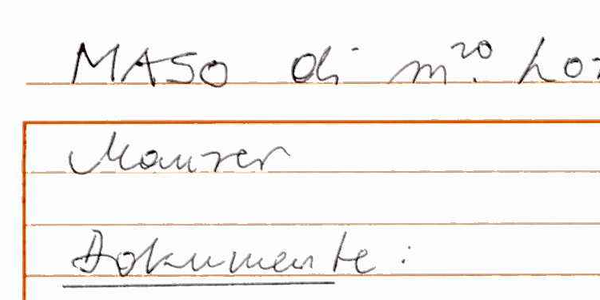 MASO di m²⁰. Lor
Maurer
Dokumente: